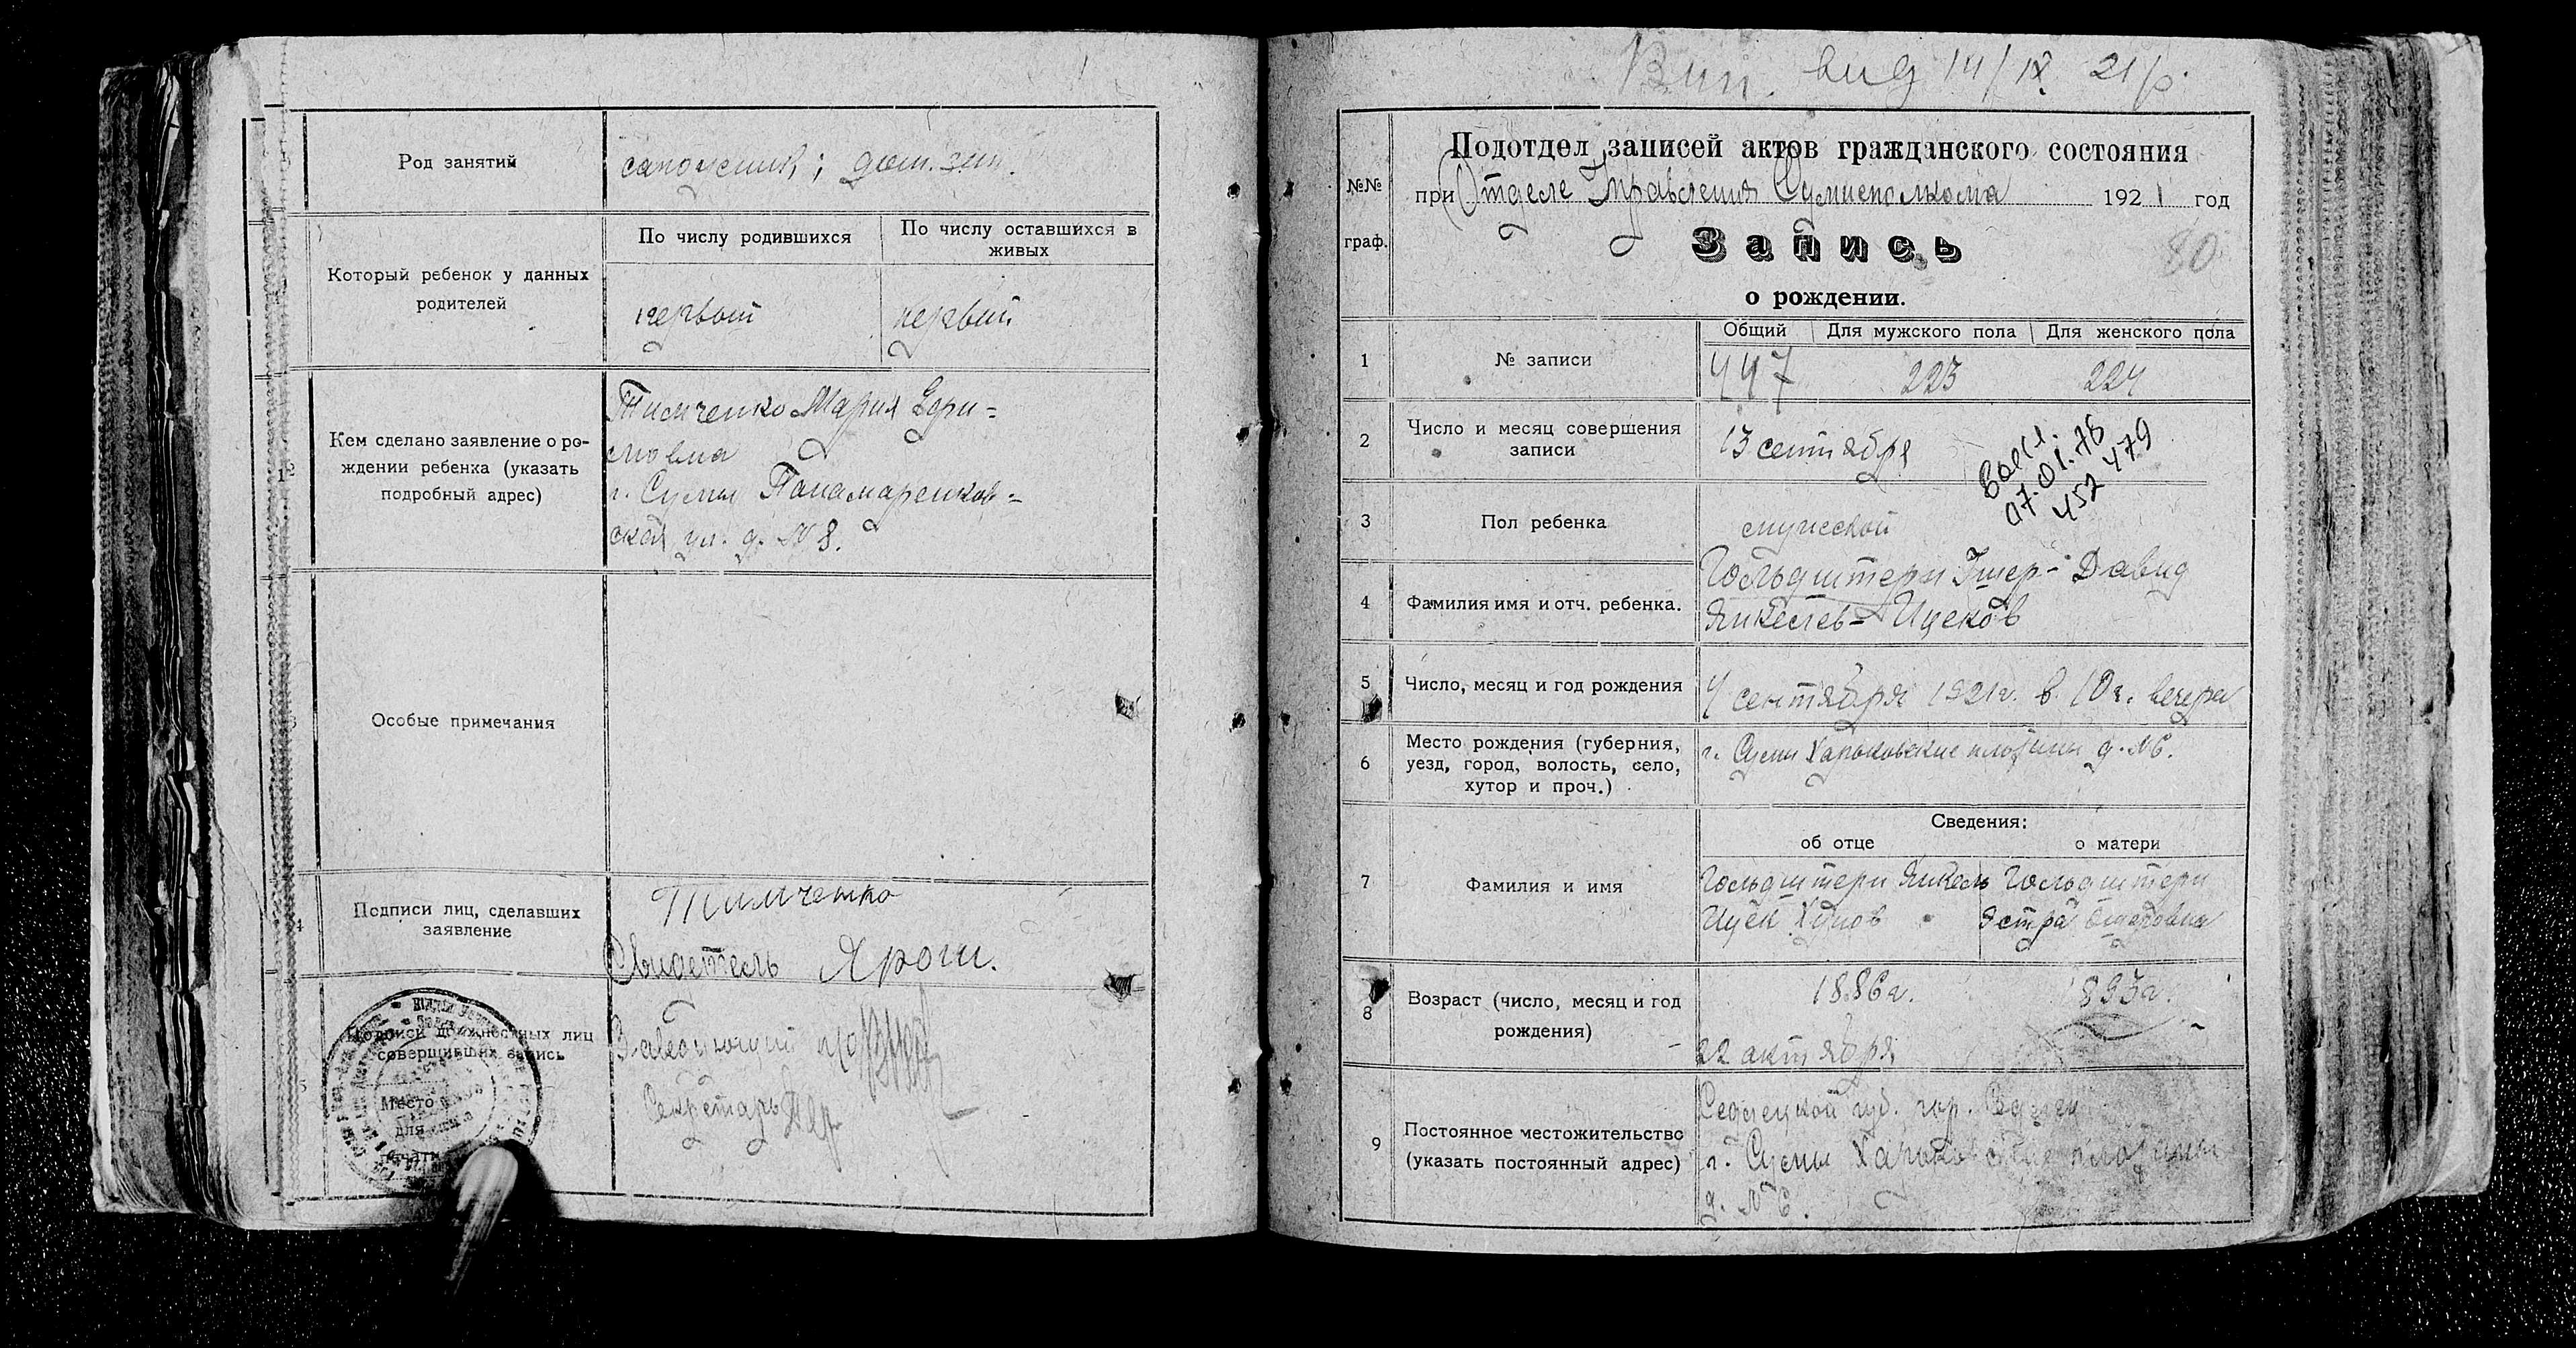 Род занятий
сапожник; дом. зан.
Который ребенок у данных
родителей
По числу родившихся
По числу оставшихся в
живых
первый
первый
Кем сделано заявление о ро-
ждении ребенка (указать
подробный адрес)
Тимченко Мария
г. Сумы Панамаренков-
ская ул. д. № 8.
Особые примечания
Подписи лиц, сделавших
заявление
Тимченко
Свидетель Ярош.
Подписи должностных лиц
совершивших запись
Место
для
печати
Заведующий
Секретарь
Вип. вид 14/IX 21 р.
№№
граф.
Подотдел записей актов гражданского состояния
при Отделе Управления Сумисполкома 1921 год
Запись
80
о рождении.
Общий Для мужского пола Для женского пола
1 № записи 447 223 224
2 Число и месяц совершения
записи
13 сентября
07.01.76
452479
3 Пол ребенка
мужской
4 Фамилия имя и отч. ребенка.
Гольдштерн Давид
Янкелев-Ицеков
5 Число, месяц и год рождения
4 сентября 1921 г. в 10 ч. вечера
6 Место рождения (губерния,
уезд, город, волость, село,
хутор и проч.)
г. Сумы Харьковские плотины д. № 6.
Сведения:
об отце
о матери
7 Фамилия и имя
Гольдштерн Янкель
Ицек
Гольдштерн
8 Возраст (число, месяц и год
рождения)
1886 г.
22 октября
1893 г.
9 Постоянное местожительство
(указать постоянный адрес)
Седлецкой губ. гор.
г. Сумы Харьковские плотины
д. № 6.